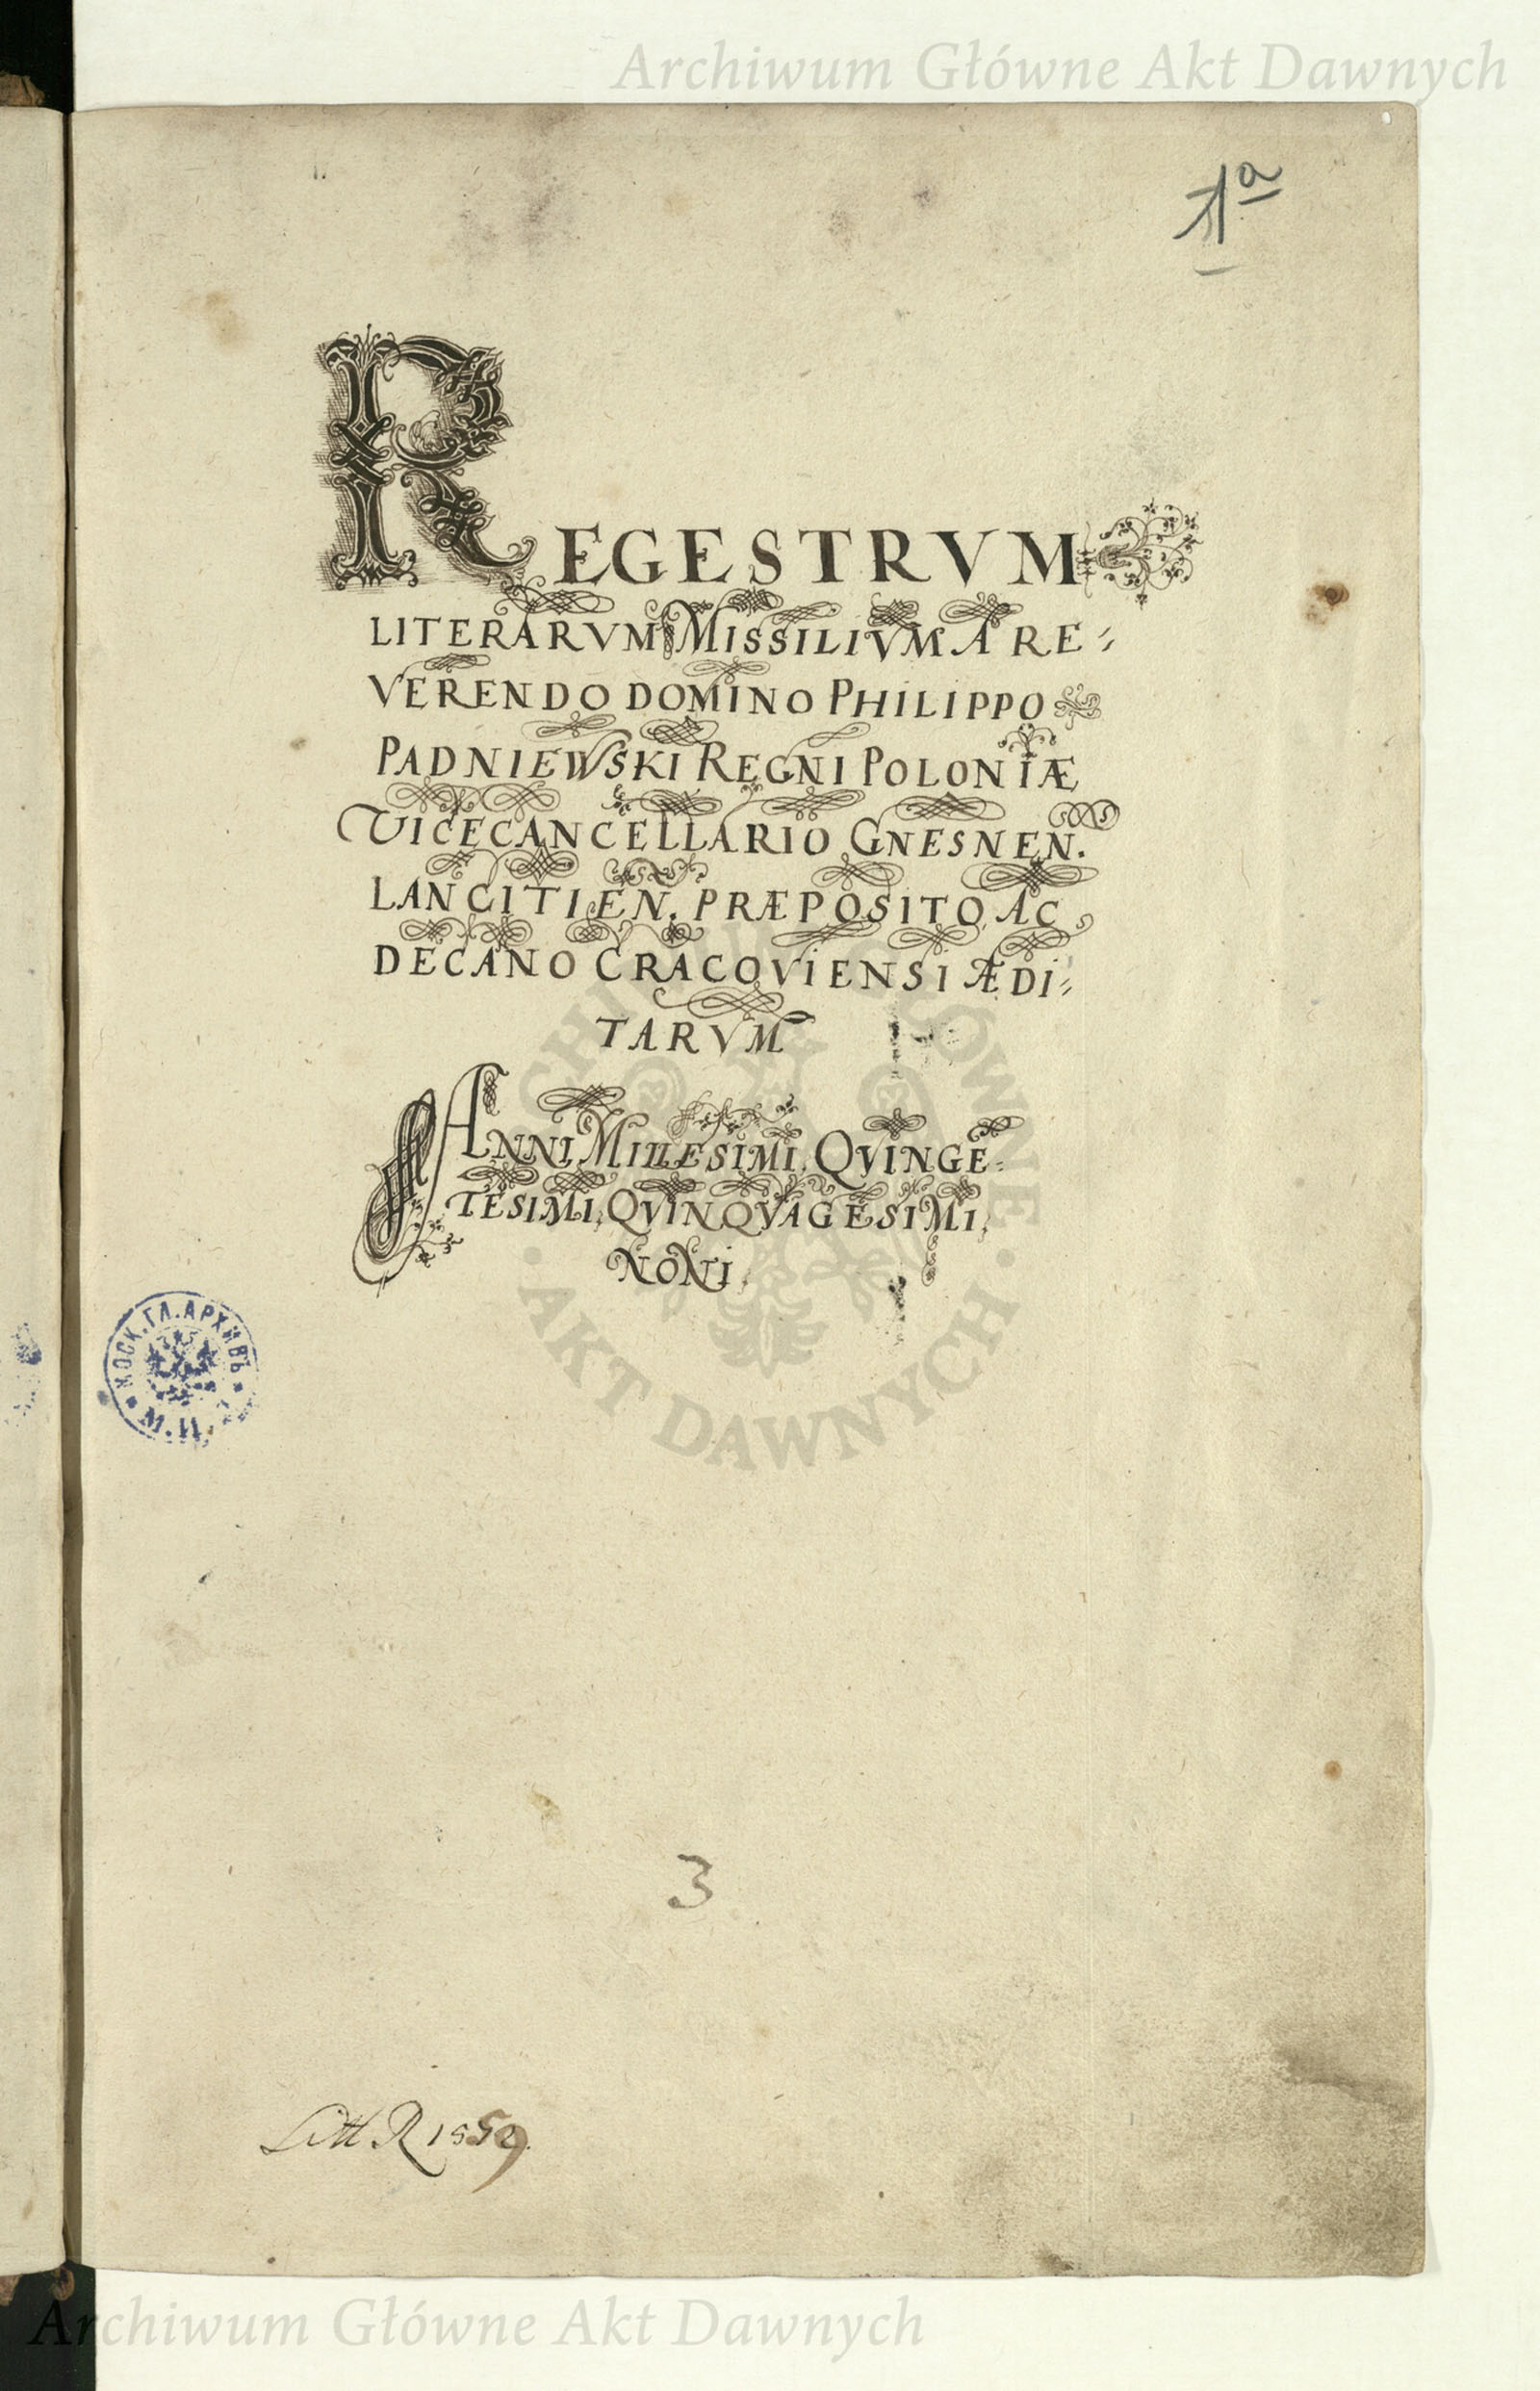 Archiwum Główne Akt Dawnych
1a
REGESTRVM
LITERARVM MISSILIVM A RE=
VERENDO DOMINO PHILIPPO
PADNIEWSKI REGNI POLONIÆ
VICECANCELLARIO GNESNEN.
LANCITIEN. PRÆPOSITO AC
DECANO CRACOVIENSI ÆDI=
TARVM
ANNI MILLESIMI, QVINGE=
TESIMI, QVINQVAGESIMI,
NONI,
МОСК. ГЛ. АРХИВЪ
ARCHIWUM GŁÓWNE
AKT DAWNYCH
3
Litt R 1559.
Archiwum Główne Akt Dawnych